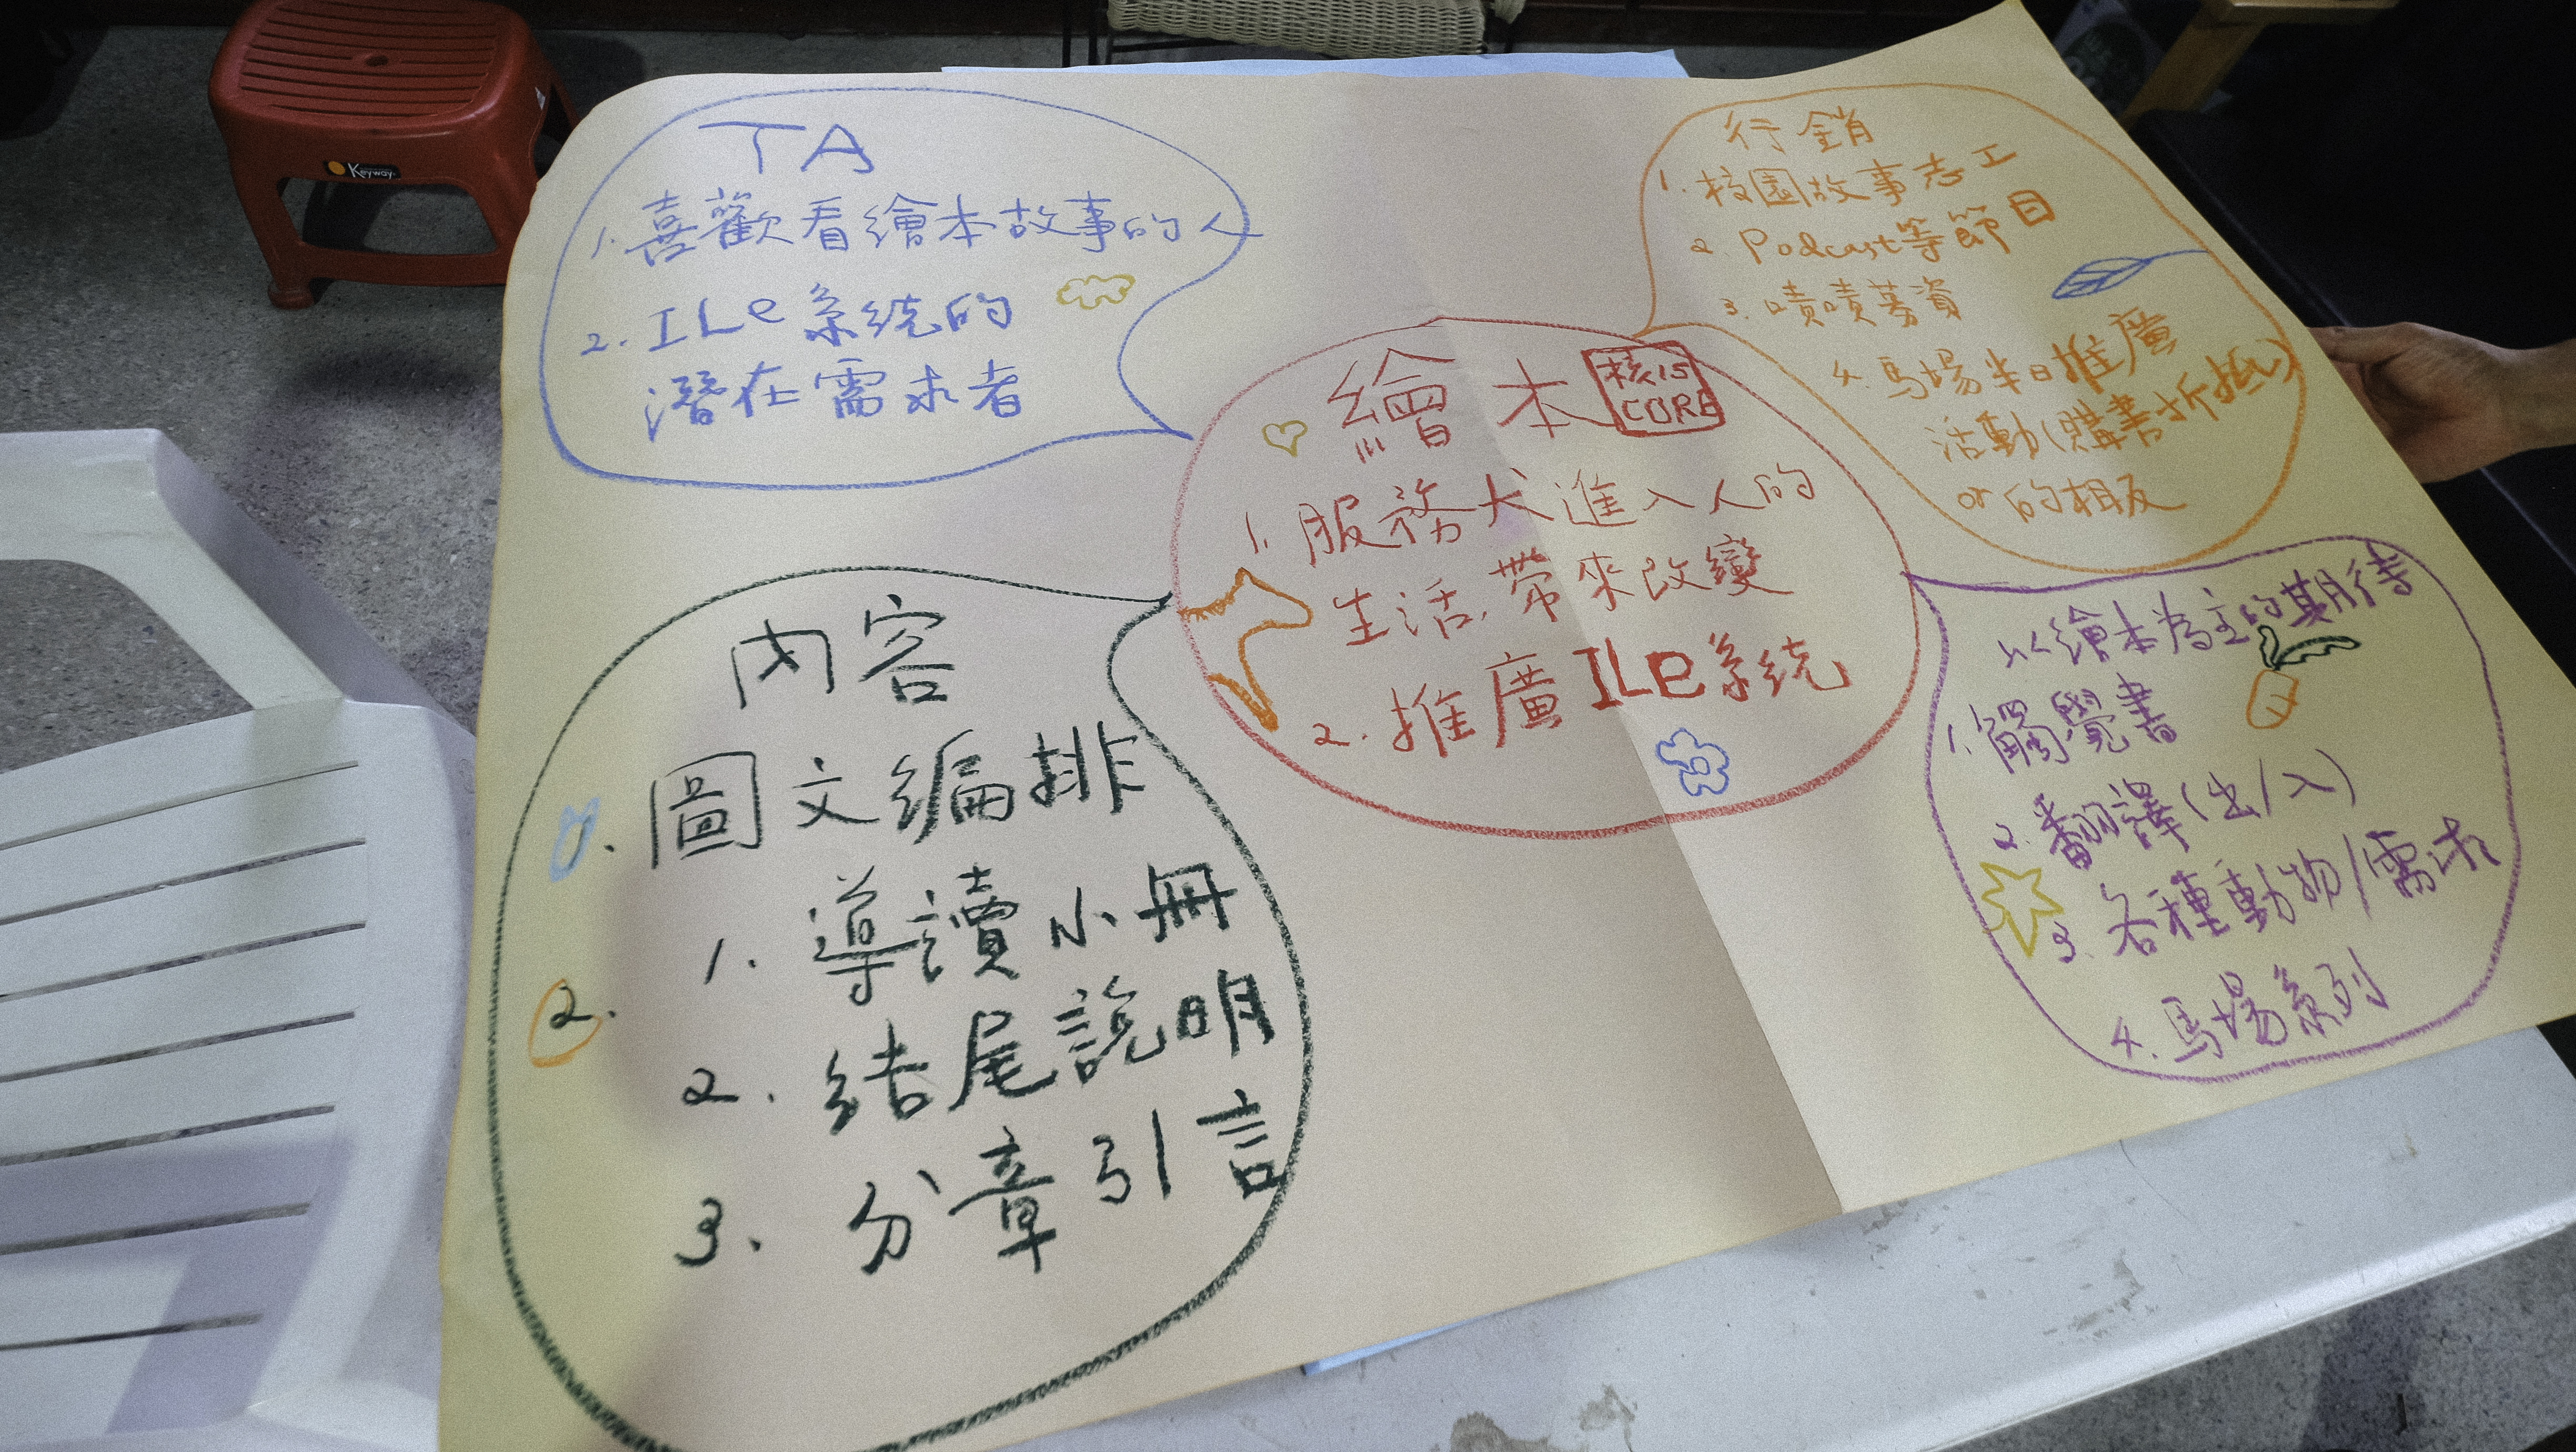 Keyway
TA
1. 喜歡看繪本故事的人
2. ILe系統的
潛在需求者
行銷
1. 校園故事志工
2. Podcast等節目
3. 嘖嘖募資
4. 馬場半日推廣
活動(購書折抵)
or的相反
繪本 核心
CORE
1. 服務犬進入人的
生活,帶來改變
2. 推廣ILe系統
內容
1. 圖文編排
2.
1. 導讀小冊
2. 結尾說明
3. 分章引言
以繪本為主的期待
1. 觸覺書
2. 翻譯(出/入)
3. 各種動物/需求
4. 馬場系列